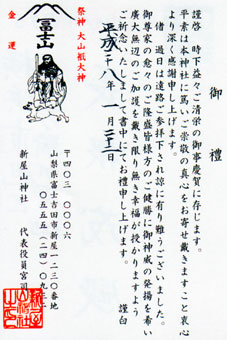 御禮
謹啓 時下益々ご清栄の御事慶賀に存じます。
平素は本神社に篤いご崇敬の真心をお寄せ戴きますこと衷心
より深く感謝申し上げます。
偖 過日は遠路ご参拝下され誠に有り難うございました。
御尊家の愈々のご隆盛皆様方のご健勝に御神威の発揚を希い
広大無辺のご加護を戴き限り無き幸福が授かりますよう
ご祈念いたしまして書中にてお禮申し上げます。
謹白
平成二十八年 一月三十一日
祭神 大山祇大神
冨士山
金運
〒四〇三 〇〇〇六
山梨県富士吉田市新屋一二三〇番地
〇五五五(二四)〇九三二
新屋山神社 代表役員宮司